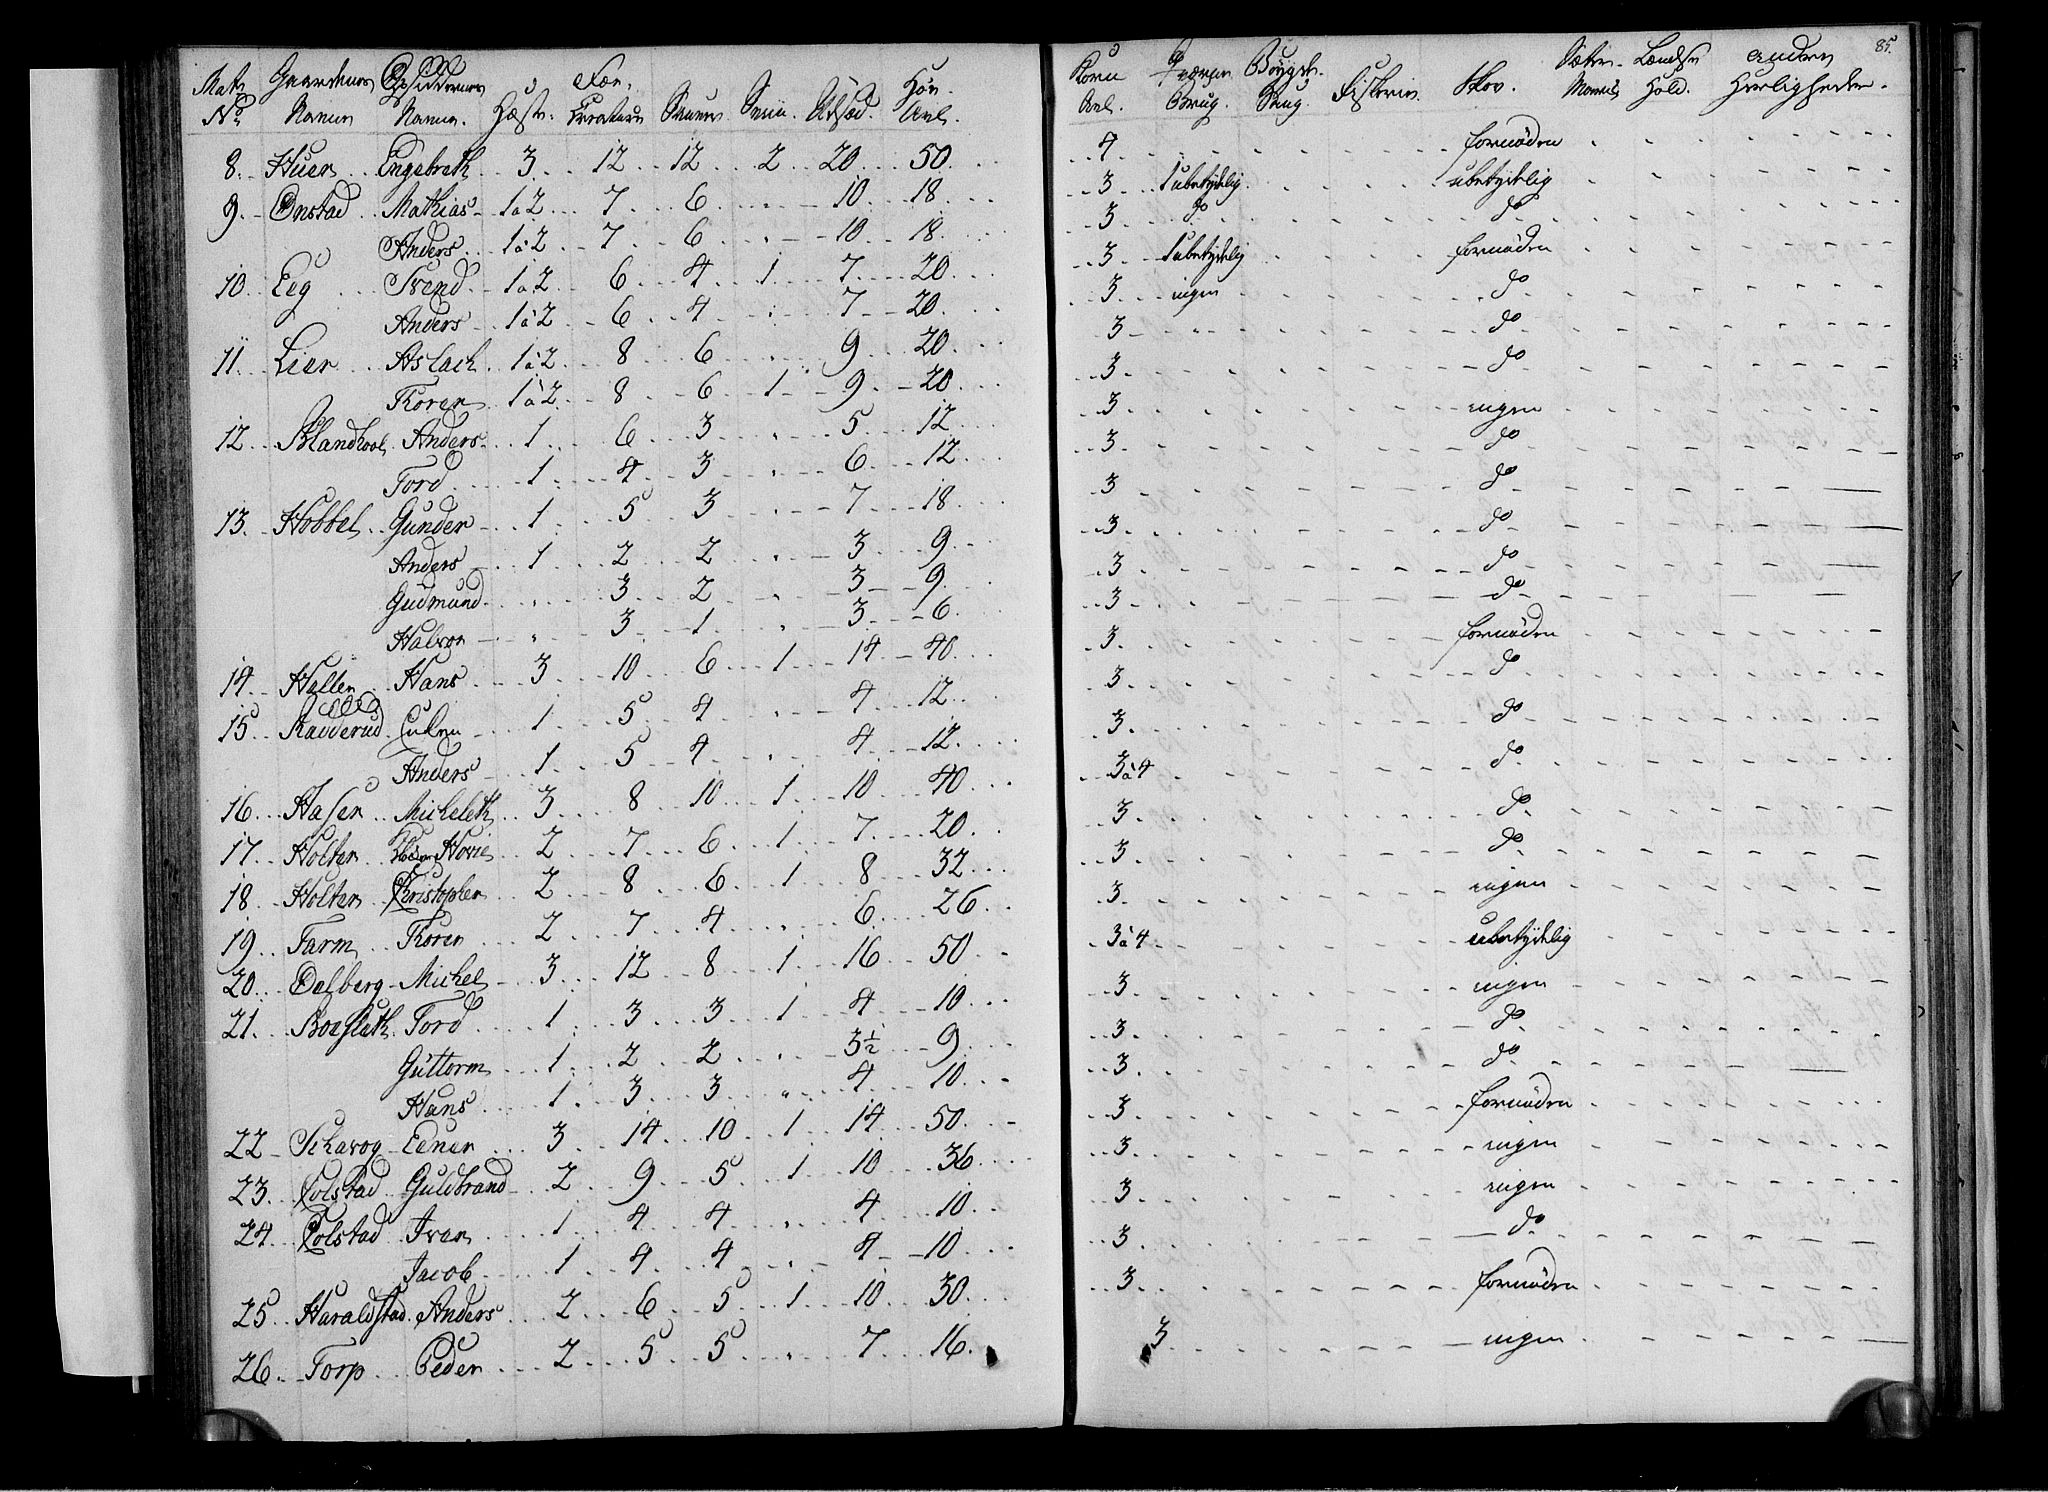 85.
Mat: No Gaardenes Navne Opsiddernes Navne. Heste. Fæe Creature Sauer Sviin. Udsæd. Høe Avl. Korn Avl. Qværne Brug. Bøygde Saug. Fiskerie. Skov. Sæter Havnℓ Hold. Andre Herligheder.
8. Huer Engebreth 3 12 12 2 20 50. 4 fornøden
9. Onstad Mathias 1 à 2 7 6 " 10 18 3 1 ubetydelig ubetydelig
Anders 1 à 2 7 6 " 10 18. 3 do do
10. Eeg Svend 1 à 2 6 4 1 7 20 3 1 ubetydelig fornøden
Anders 1 à 2 6 4 " 7 20. 3 ingen do
11. Lier Aslach 1 à 2 8 6 " 9 20. 3 " do
Thoren 1 à 2 8 6 1 9 20. 3 do
12. Blandkool Anders 1 6 3 " 5 12 3 ingen
Tord 1 4 3 " 6 12. 3 do
13. Hobbel Gunder 1 5 3 " 7 18. 3 do
Anders 1 2 2 " 3 9 3 do
Gudmund " 3 2 " 3 9. 3 do
Halvor " 3 1 " 3 6. 3 do
14. Haller Hans 3 10 6 1 14 40. 3 fornøden
15. Radderud 1 5 4 " 4 12. 3 do
Anders 1 5 4 " 4 12. 3 do
16. Haser Micheleth 3 8 10 1 10 40 3 à 4 do
17. Holter Hovie 2 7 6 1 7 20 3 do
18. Holter Christopher 2 8 6 1 8 32 3 do
19. Farm Thoren 2 7 4 " 6 26 3 ingen
20. Dalberg Michel 3 12 8 1 16 50 3 à 4 ubetydelig
21. Tord 1 3 3 1 4 10. 3 ingen
Guttorm 1 2 2 " 3½ 9 3 do
Hans 1 3 3 " 4 10. 3 do
22 Schavog Eener 3 14 10 1 14 50. 3 fornøden
23. Colstad Guldbrand 2 9 5 1 10 36. 3 ingen
24. Colstad Iver 1 4 4 " 4 10. 3 ingen
Jacob 1 4 4 " 4 10 3 do
25 Haraldstad Anders 2 6 5 1 10 30. 3 fornøden
26. Torp Peder 2 5 5 " 7 16. 3 ingen